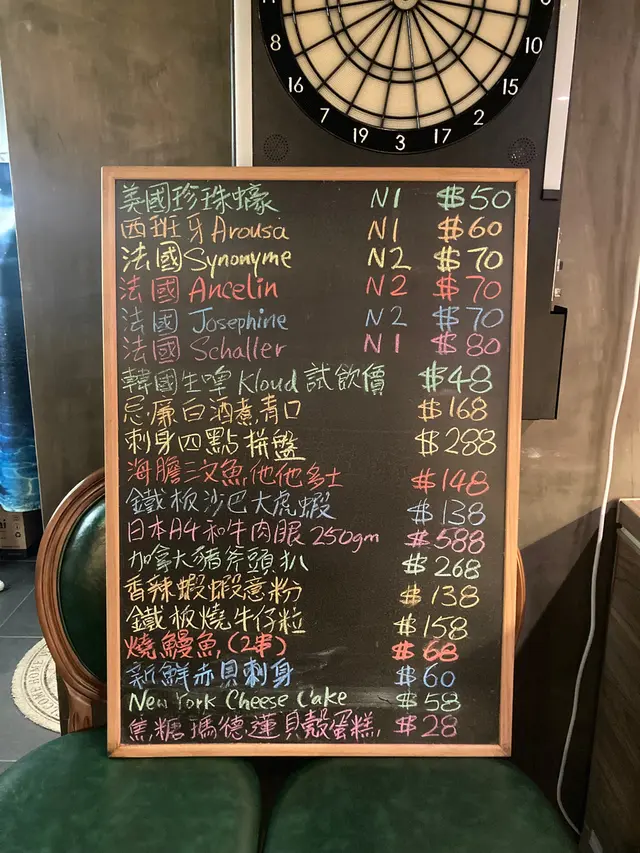 8
10
16
15
7
2
19
3
17
美國珍珠蠔 N1 $50
西班牙Arousa N1 $60
法國Synonyme N2 $70
法國 Ancelin N2 $70
法國 Josephine N2 $70
法國 Schaller N1 $80
韓國生啤 Kloud 試飲價 $48
忌廉白酒煮青口 $168
刺身四點拼盤 $288
海膽三文魚他他多士 $148
鐵板沙巴大虎蝦 $138
日本A4和牛肉眼 250gm $588
加拿大豬斧頭扒 $268
香辣蝦蝦意粉 $138
鐵板燒牛仔粒 $158
燒鰻魚(2串) $68
新鮮赤貝刺身 $60
New York Cheese Cake $58
焦糖瑪德蓮貝殼蛋糕 $28